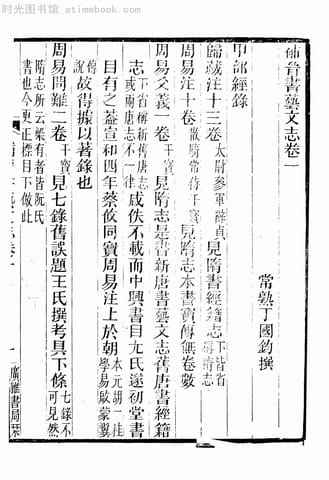 时光图书馆 atimebook.com
補晉書藝文志卷一
常熟丁國鈞撰
甲部經錄
歸藏注十三卷 太尉參軍薛貞 見隋書經籍志 下皆省稱隋志
周易注十卷 散騎常侍干寶 見隋志本書寶傳無卷數
周易爻義一卷 干寶 見隋志是書新唐書藝文志舊唐書經籍
志 下省稱新舊唐志或兩唐志不一律 咸佚不載而中興書目尤氏遂初堂書
目有之葢宣和四年蔡攸同寶周易注上於朝 本元胡一桂學易啟蒙翼
傳說 故得據以著錄也
周易問難二卷 干寶 見七錄舊誤題王氏撰考具下條 七錄不可見然
隋志所云梁有者皆阮氏書也今更正標目下倣此
一
廣雅書局栞